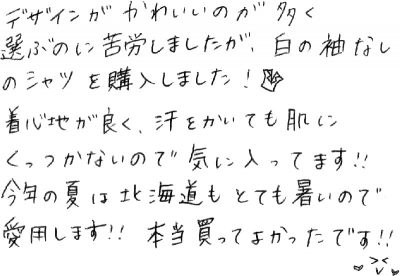 デザインが かわいいのが 多く
選ぶのに苦労しましたが、白の袖なし
のシャツを購入しました!
着心地が良く、汗をかいても肌に
くっつかないので気に入ってます!!
今年の夏は北海道もとても暑いので
愛用します!! 本当買ってよかったです!!